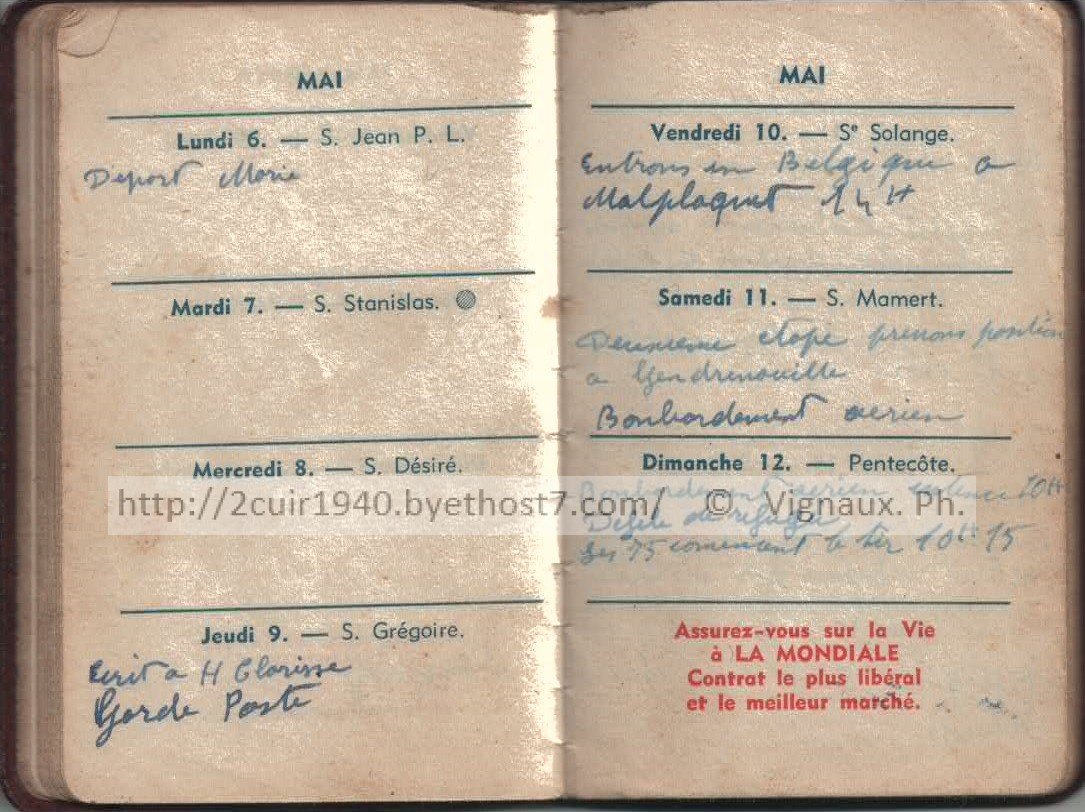 MAI
Lundi 6. — S. Jean P. L.
Départ Marie
Mardi 7. — S. Stanislas.
Mercredi 8. — S. Désiré.
Jeudi 9. — S. Grégoire.
Ecrit a H Clarisse
Garde Poste
MAI
Vendredi 10. — Sᵉ Solange.
Entrons en Belgique a
Malplaquet 14 H
Samedi 11. — S. Mamert.
Deuxieme etape prenons position
a Gendrenouille
Bonbardement aerien
Dimanche 12. — Pentecôte.
Bonbardement aerien 10H
Defile de refugie
les 75 comencent le tir 10H 15
Assurez-vous sur la Vie
à LA MONDIALE
Contrat le plus libéral
et le meilleur marché.
http://2cuir1940.byethost7.com/ © Vignaux. Ph.